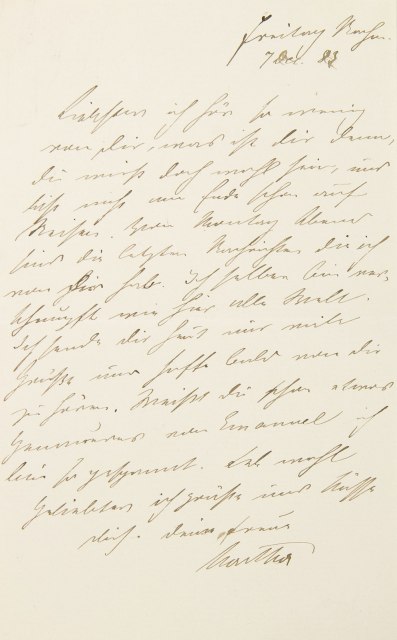 Freitag Nachm.
7 Dez. 83
Liebster ich hör so wenig
von Dir, was ist dir denn,
du wirst doch wohl sein, und
bist noch am Ende schon auf
Reisen. Von Montag Abend
sind die letzten Nachrichten die ich
von Dir hab. Ich selber bin ver-
schnupft wie hier alle Welt.
Ich sende dir heut nur viele
Grüße und hoffe bald von dir
zu hören. Weißt du schon etwas
Genaueres von Emanuel ich
bin so gespannt. Leb wohl
Geliebter ich grüße und küsse
Dich. deine treue
Martha